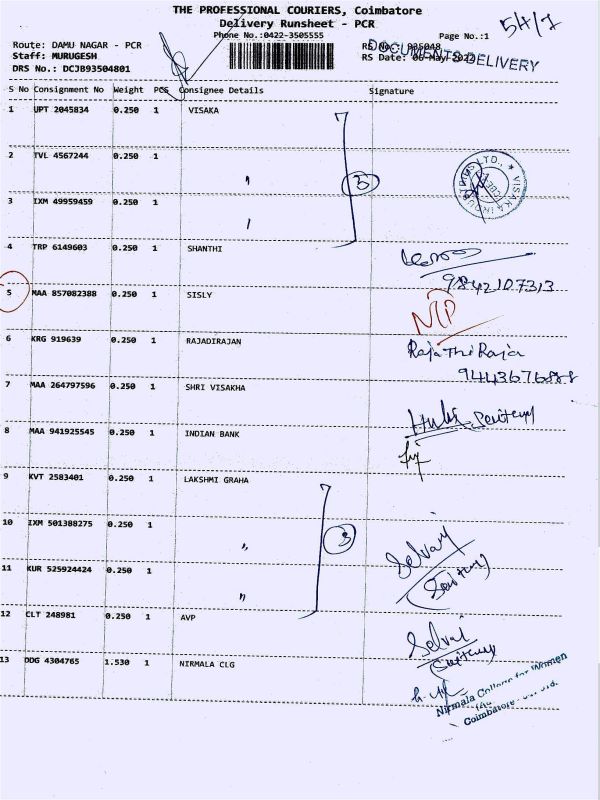 THE PROFESSIONAL COURIERS, Coimbatore
Delivery Runsheet - PCR
Phone No.:0422-3505555
Page No.:1
54/7
Route: DAMU NAGAR - PCR
RS No.: 935048
Staff: MURUGESH
RS Date: 06-May-2022
DOCUMENTS DELIVERY
DRS No.: DCJB93504801
S No Consignment No Weight PCS Consignee Details Signature
1 UPT 2045834 0.250 1 VISAKA
2 TVL 4567244 0.250 1 "
3
VISAKA INDUSTRIES LTD.,
3 IXM 49959459 0.250 1
4 TRP 6149603 0.250 1 SHANTHI
9842107313
5 MAA 857082388 0.250 1 SISLY
6 KRG 919639 0.250 1 RAJADIRAJAN
RajaThiRaja
9443676888
7 MAA 264797596 0.250 1 SHRI VISAKHA
8 MAA 941925545 0.250 1 INDIAN BANK
9 KVT 2583401 0.250 1 LAKSHMI GRAHA
10 IXM 501388275 0.250 1 "
3
Selvam
11 KUR 525924424 0.250 1 "
12 CLT 248981 0.250 1 AVP
13 DDG 4304765 1.530 1 NIRMALA CLG
Nirmala College for Women
Coimbatore